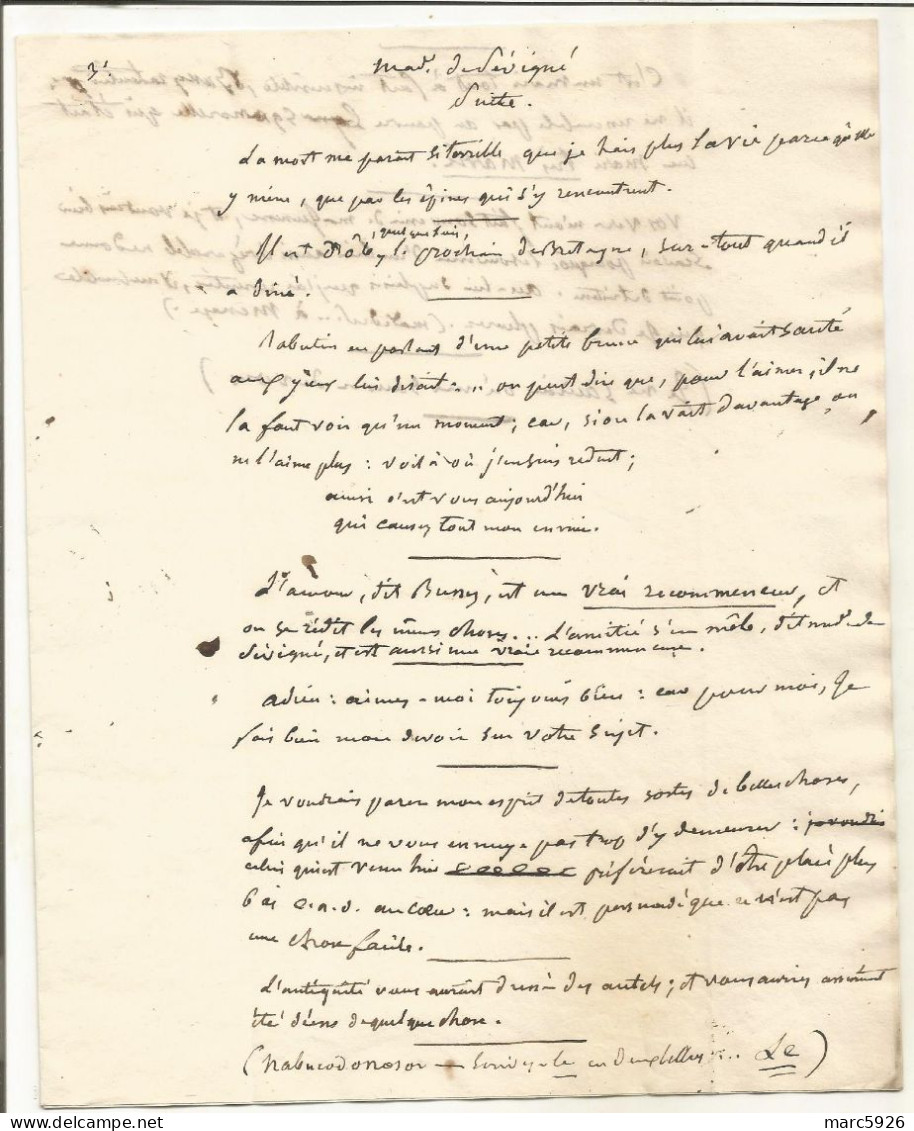 3°.
Mad. de Sévigné
Suite.
La mort me paraît si terrible, que je hais plus la vie parce qu'elle
y mène, que par les épines qui s'y rencontrent.
quelquefois,
Il est drôle, le prochain de Bretagne, sur-tout quand il
a diné.
Rabutin en parlant d'une petite brune qui lui avait sauté
aux yeux lui disait... on peut dire que, pour l'aimer, il ne
la faut voir qu'un moment; car, si on la voit davantage, on
ne l'aime plus: voilà où j'en suis réduit;
ainsi c'est vous aujourd'hui
qui causez tout mon ennui.
L'amour, dit Bussy, est un vrai recommenceur, et
on se rédit les mêmes choses... L'amitié s'en mêle, dit mad. de
Sévigné, et est aussi une vraie recommenceuse.
adieu: aimez-moi toujours bien: car pour moi, je
fais bien mon devoir sur votre sujet.
Je voudrais parer mon esprit de toutes sortes de belles choses,
afin qu'il ne vous ennuye pas trop d'y demeurer:
celui qui est venu hier préférerait d'être placé plus
bas c.a.d. au cœur: mais il est persuadé que ce n'est pas
une chose facile.
L'antiquité vous aurait dressé des autels; et vous auriez assurément
été déesse de quelque chose.
(Nabucodonosor en deux ... Le)
marc5926